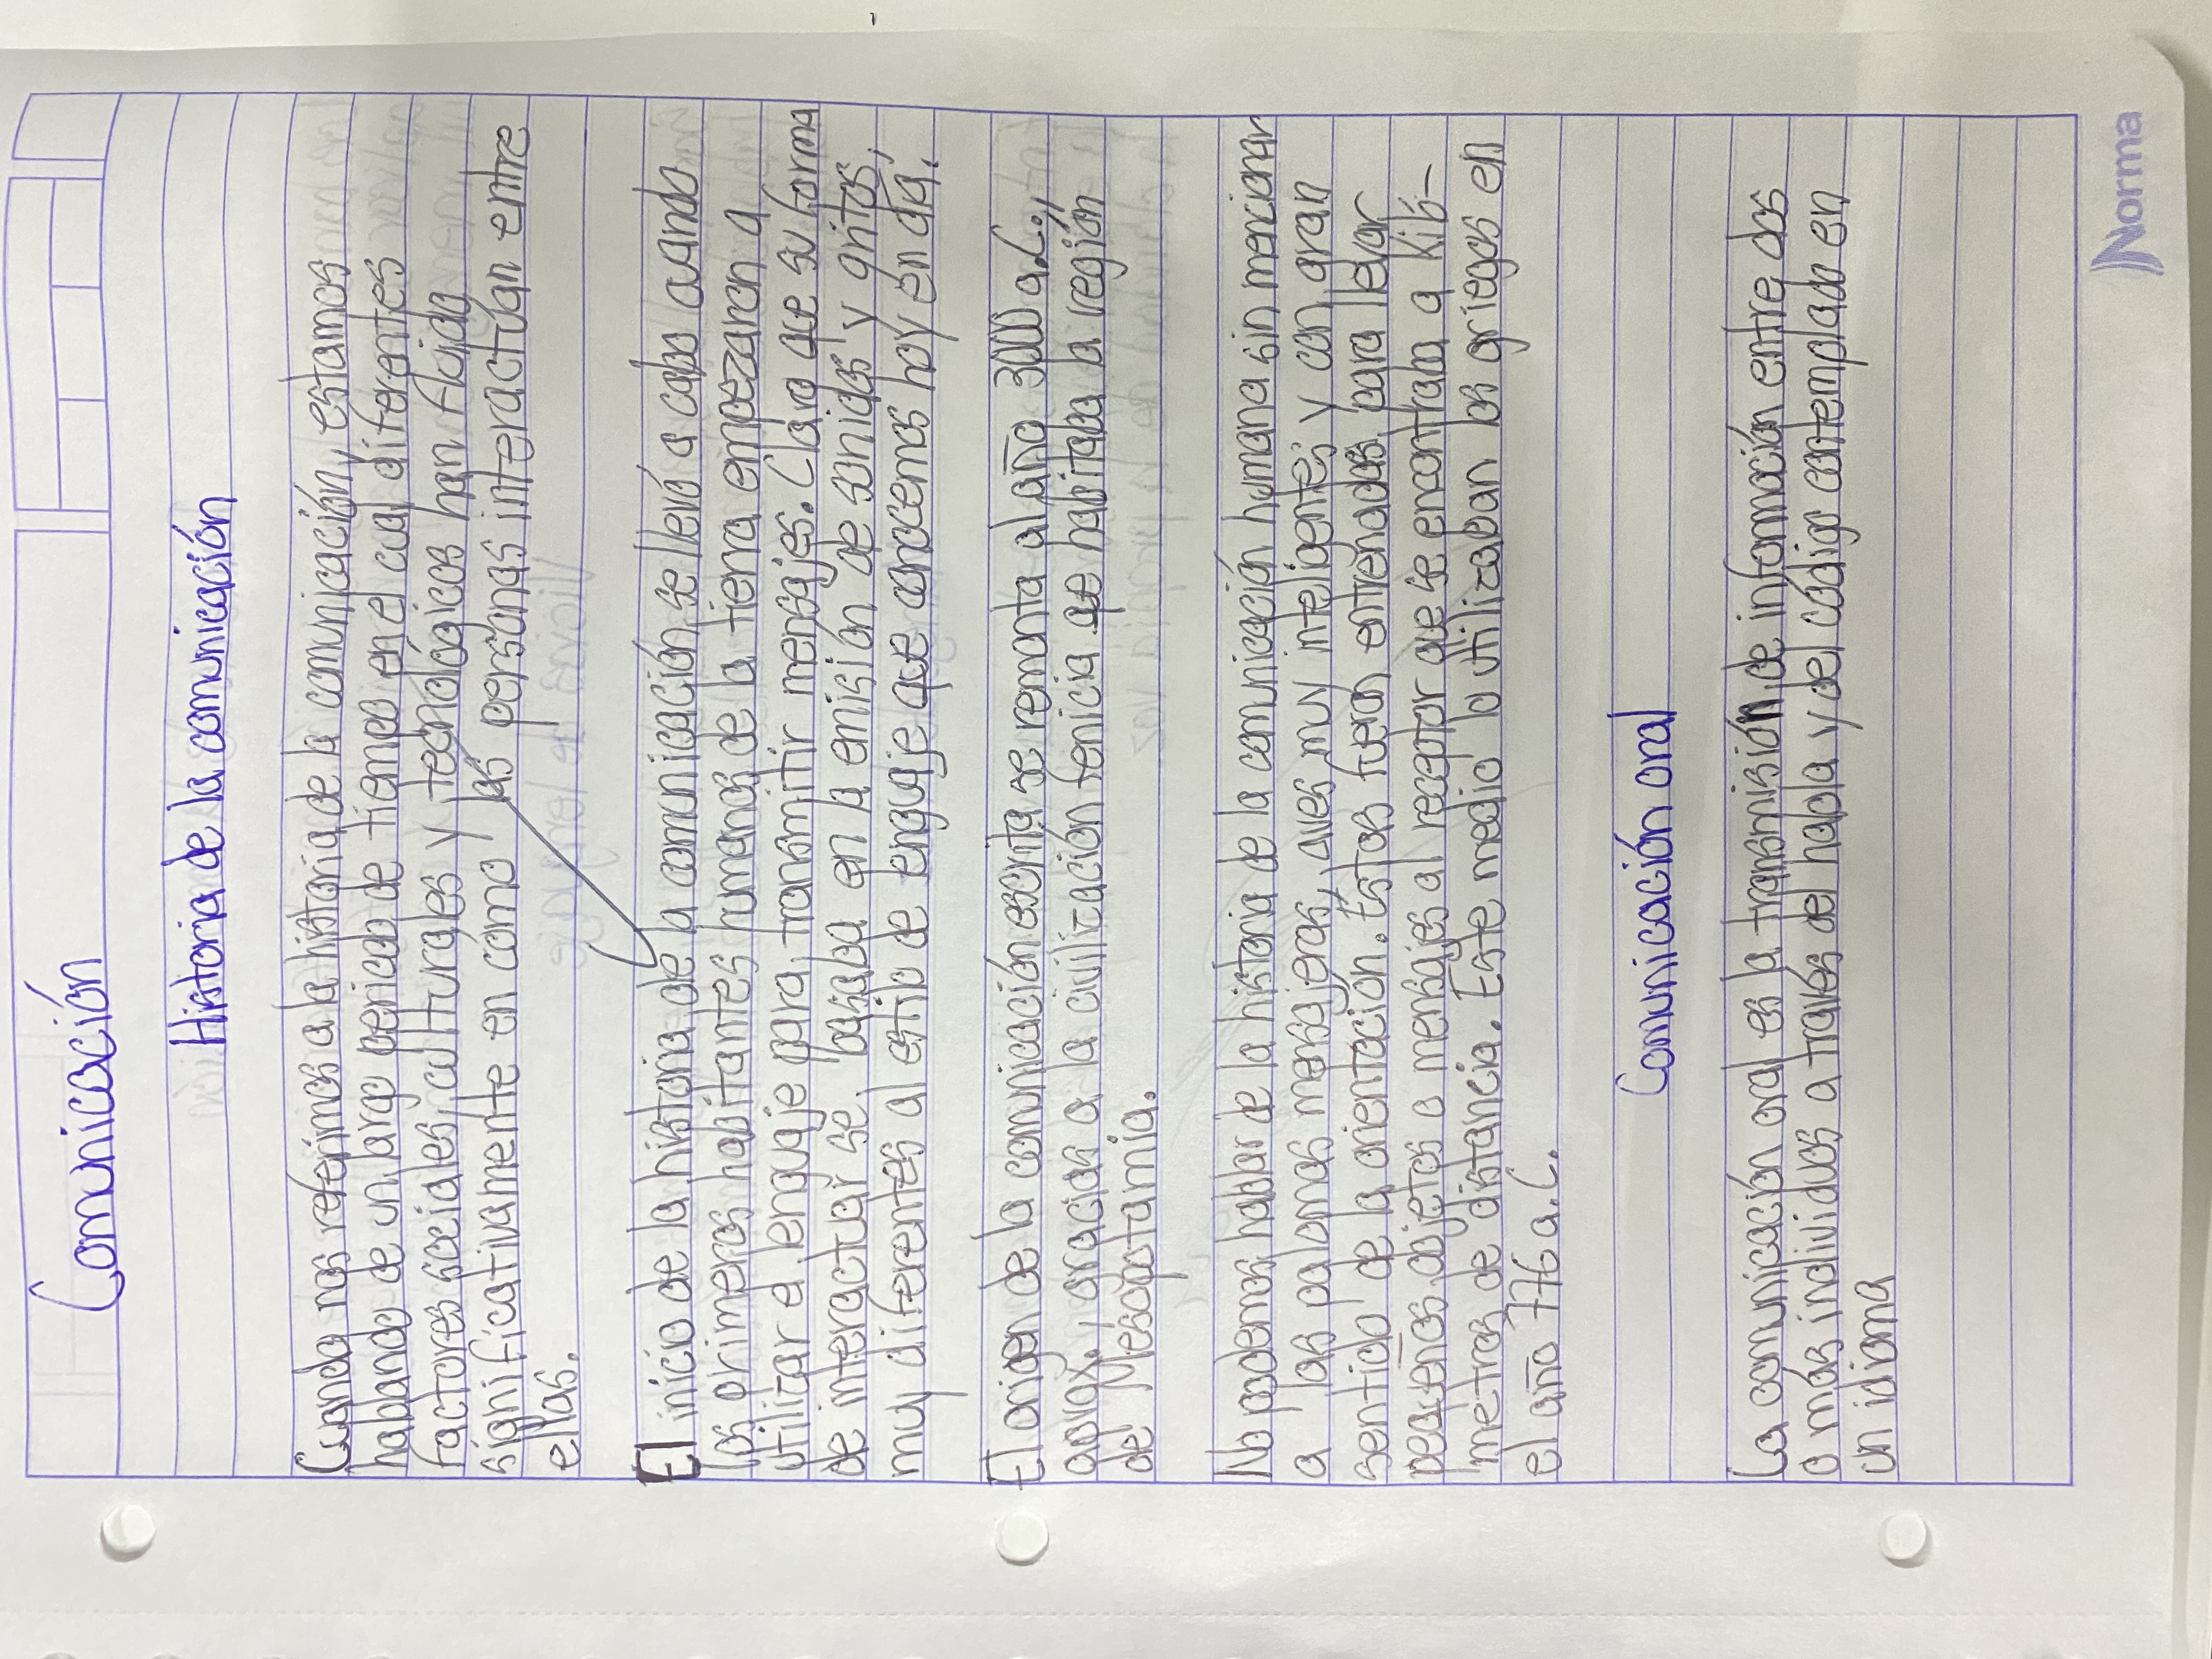 Comunicación
Historia de la comunicación
Cuando nos referimos a la historia de la comunicación, estamos
hablando de un largo periodo de tiempo en el cual diferentes
factores sociales, culturales y tecnológicos han fluido
significativamente en cómo las personas interactúan entre
ellas.
El inicio de la historia de la comunicación se llevó a cabo cuando
los primeros habitantes humanos de la tierra empezaron a
utilizar el lenguaje para transmitir mensajes. Claro que su forma
de interactuar se basaba en la emisión de sonidos y gritos,
muy diferentes al estilo de lenguaje que conocemos hoy en día.
El origen de la comunicación escrita se remonta al año 3000 a.C.,
aprox., gracias a la civilización fenicia que habitaba la región
de Mesopotamia.
No podemos hablar de la historia de la comunicación humana sin mencionar
a las palomas mensajeras, aves muy inteligentes y con gran
sentido de la orientación. Estas fueron entrenadas para llevar
pequeños objetos o mensajes al receptor que se encontraba a kiló-
metros de distancia. Este medio lo utilizaban los griegos en
el año 776 a.C.
Comunicación oral
La comunicación oral es la transmisión de información entre dos
o más individuos a través del habla y del código contemplado en
un idioma
Norma